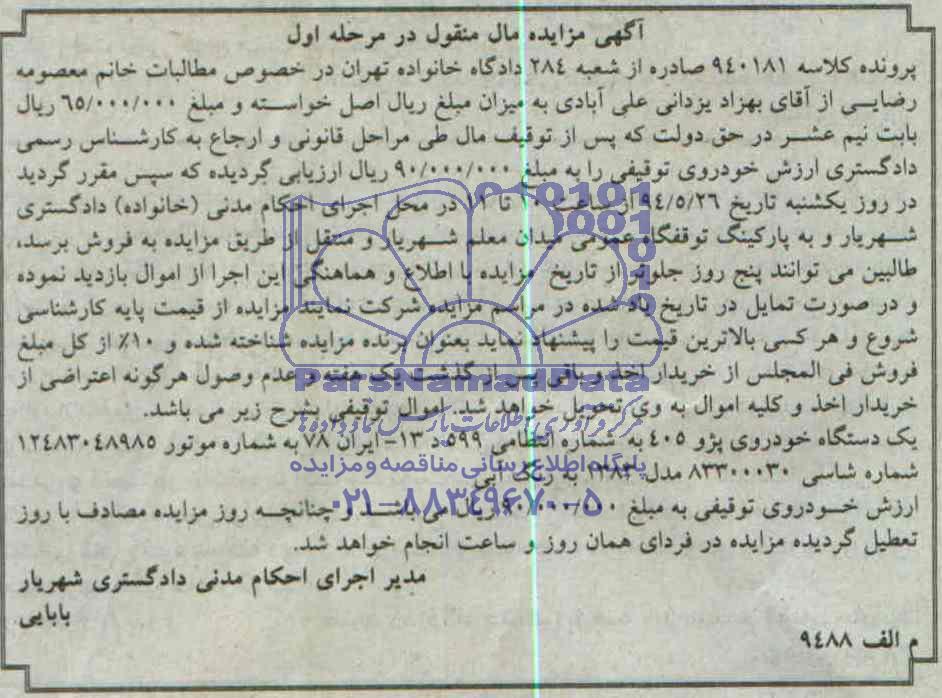 آگهی مزایده مال منقول در مرحله اول
پرونده کلاسه ۹۴۰۱۸۱ صادره از شعبه ۲۸۴ دادگاه خانواده تهران در خصوص مطالبات خانم معصومه
رضایی از آقای بهزاد یزدانی علی آبادی به میزان مبلغ ریال اصل خواسته و مبلغ ۶۵/۰۰۰/۰۰۰ ریال
بابت نیم عشر در حق دولت که پس از توقیف مال طی مراحل قانونی و ارجاع به کارشناس رسمی
دادگستری ارزش خودروی توقیفی را به مبلغ ۹۰/۰۰۰/۰۰۰ ریال ارزیابی گردیده که سپس مقرر گردید
در روز یکشنبه تاریخ ۹۴/۵/۲۶ از ساعت ۱۰ تا ۱۱ در محل اجرای احکام مدنی (خانواده) دادگستری
شهریار و به پارکینگ توقفگاه عمومی میدان معلم شهریار و منتقل از طریق مزایده به فروش برسد،
طالبین می توانند پنج روز جلوتر از تاریخ مزایده با اطلاع و هماهنگی این اجرا از اموال بازدید نموده
و در صورت تمایل در تاریخ یاد شده در مراسم مزایده شرکت نمایند مزایده از قیمت پایه کارشناسی
شروع و هر کسی بالاترین قیمت را پیشنهاد نماید بعنوان برنده مزایده شناخته شده و ۱۰٪ از کل مبلغ
فروش فی المجلس از خریدار اخذ و باقی پس از گذشت یک هفته و عدم وصول هرگونه اعتراضی از
خریدار اخذ و کلیه اموال به وی تحویل خواهد شد. اموال توقیفی بشرح زیر می باشد.
یک دستگاه خودروی پژو ۴۰۵ به شماره انتظامی ۵۹۹ د ۱۳- ایران ۷۸ به شماره موتور ۱۲۴۸۳۰۴۸۹۸۵
شماره شاسی ۸۳۳۰۰۰۳۰ مدل ۱۳۸۳ به رنگ آبی
ارزش خودروی توقیفی به مبلغ ۹۰/۰۰۰/۰۰۰ ریال می باشد و چنانچه روز مزایده مصادف با روز
تعطیل گردیده مزایده در فردای همان روز و ساعت انجام خواهد شد.
مدیر اجرای احکام مدنی دادگستری شهریار
بابایی
م الف ۹۴۸۸
ParsNamadData
مرکز فرآوری اطلاعات پارس نماد داده ها
پایگاه اطلاع رسانی مناقصه و مزایده
۰۲۱-۸۸۳۴۹۶۷۰-۵